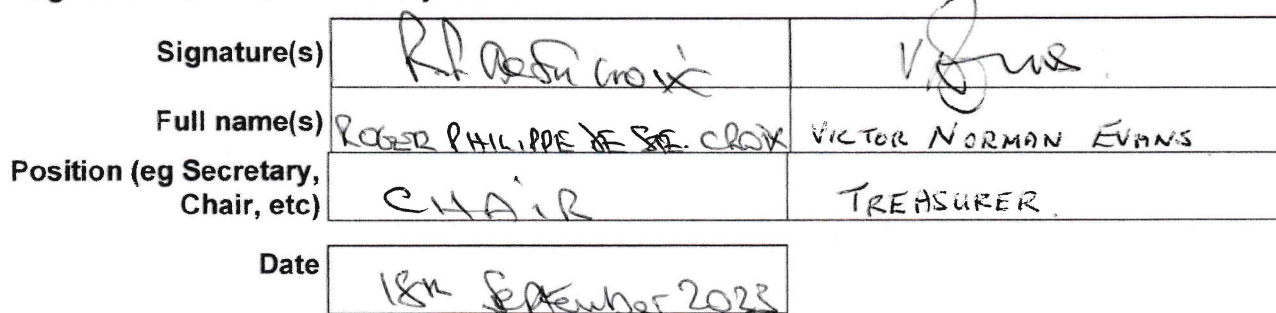 Signature(s) R.P. de Ste Croix V Evans
Full name(s) ROGER PHILIPPE DE STE. CROIX VICTOR NORMAN EVANS
Position (eg Secretary,
Chair, etc) CHAIR TREASURER.
Date 18th September 2023